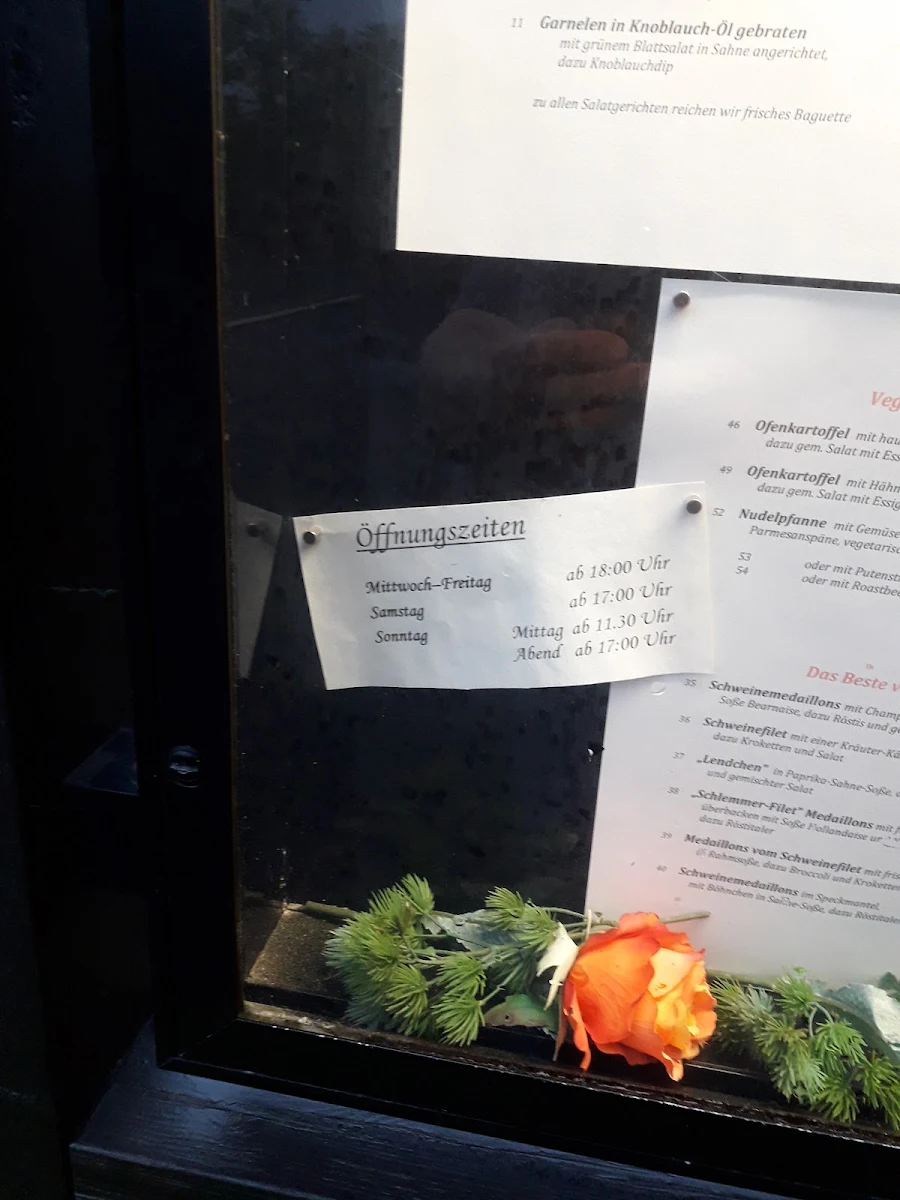 11 Garnelen in Knoblauch-Öl gebraten
mit grünem Blattsalat in Sahne angerichtet,
dazu Knoblauchdip
zu allen Salatgerichten reichen wir frisches Baguette
Öffnungszeiten
Mittwoch–Freitag ab 18:00 Uhr
Samstag ab 17:00 Uhr
Sonntag Mittag ab 11.30 Uhr
Abend ab 17:00 Uhr
Veg
46 Ofenkartoffel mit hau
dazu gem. Salat mit Ess
49 Ofenkartoffel mit Hähn
dazu gem. Salat mit Essig
52 Nudelpfanne mit Gemüse
Parmesanspäne, vegetarisc
53 oder mit Putenst
54 oder mit Roastbee
Das Beste v
35 Schweinemedaillons mit Champ
Soße Bearnaise, dazu Röstis und ge
36 Schweinefilet mit einer Kräuter-Kä
dazu Kroketten und Salat
37 „Lendchen" in Paprika-Sahne-Soße,
und gemischter Salat
38 „Schlemmer-Filet" Medaillons mit
überbacken mit Soße Hollandaise
dazu Röstitaler
39 Medaillons vom Schweinefilet mit fris
Rahmsoße, dazu Broccoli und Kroketten
40 Schweinemedaillons im Speckmantel,
mit Böhnchen in Sahne-Soße, dazu Röstitaler